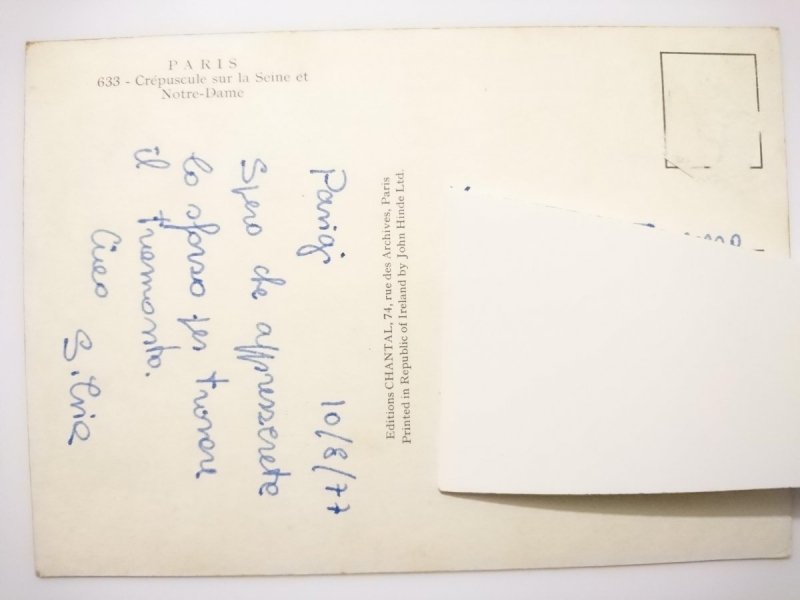 PARIS
633 - Crépuscule sur la Seine et
Notre-Dame
Parigi 10/8/77
Spero che apprezzerete
lo sforzo per trovare
il tramonto.
Ciao
Silvia
Editions CHANTAL, 74, rue des Archives, Paris
Printed in Republic of Ireland by John Hinde Ltd.